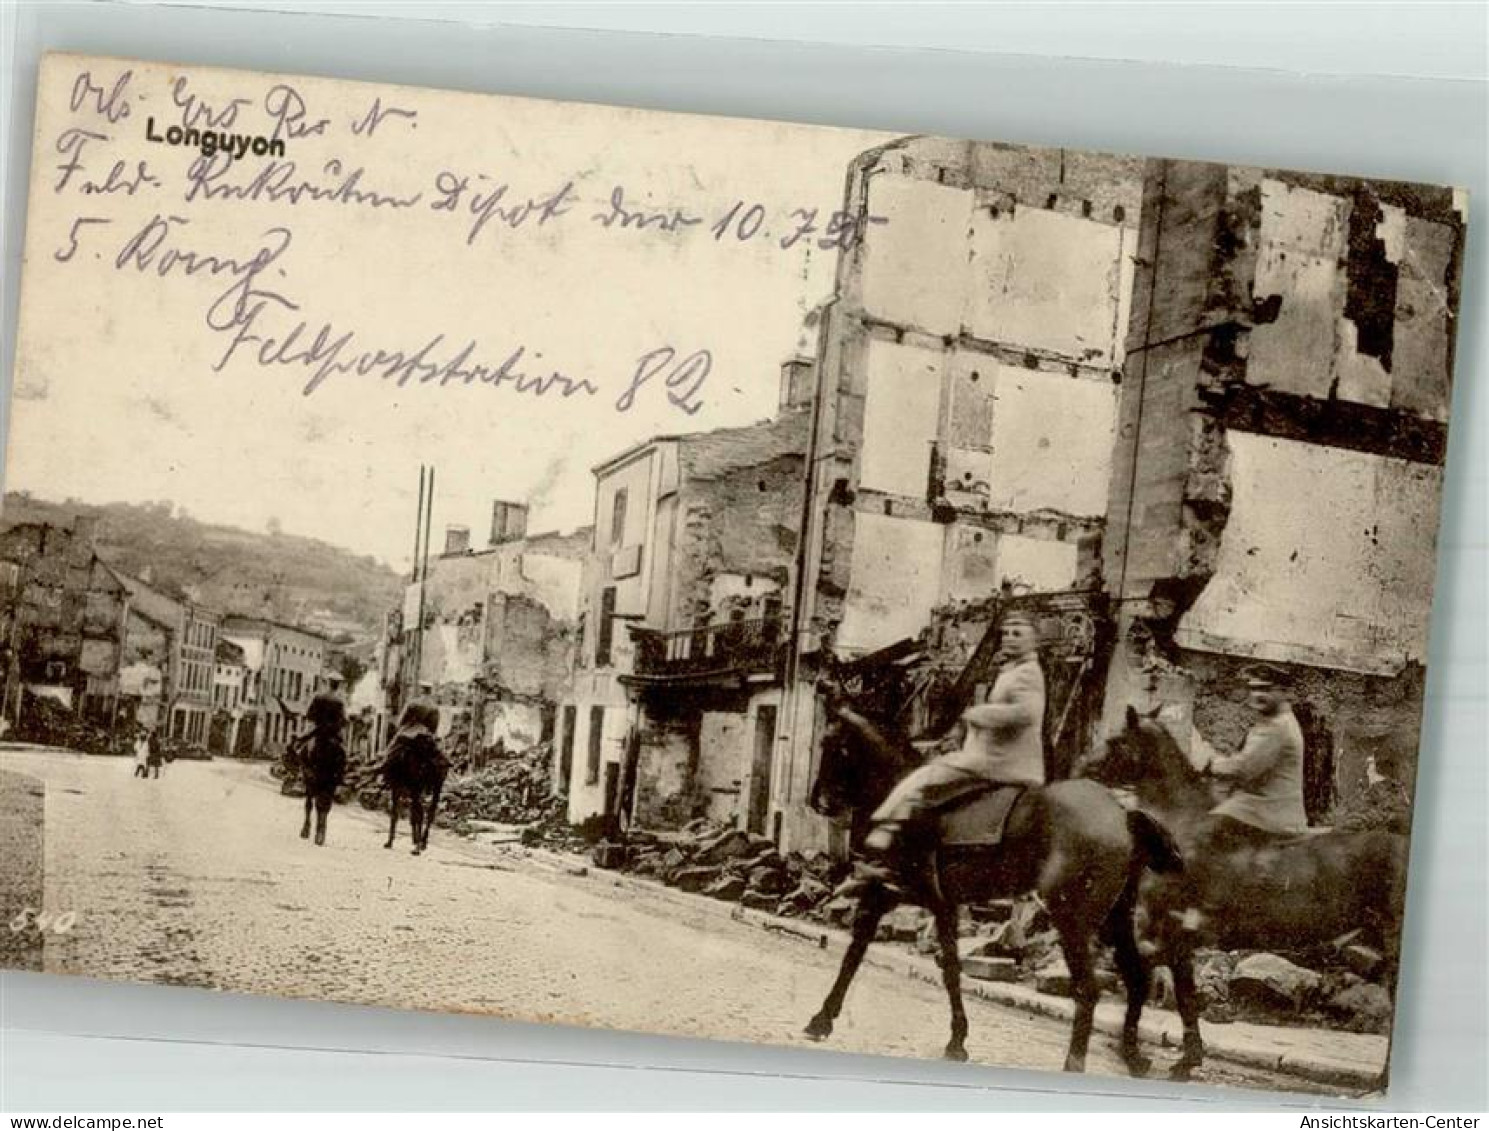 Ers Res N.
Longuyon
Feld. Rekruten Depot der 10.
5. Komp.
Feldpoststation 82
540
oldthing.de
Ansichtskarten-Center